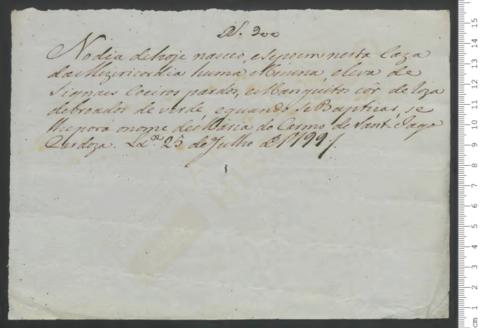 No dia de hoje nasceo, e se poem nesta Caza
da Mizericordia huma Menina, e leva de
Signais Coeiros pardos, e Manguitos cor de roza
debroados de verde, e quando se Baptizar, se
lhe pora o nome de Maria do Carmo de Sant Iago
Cardoza. Lx.ª 25 de Julho de 1799